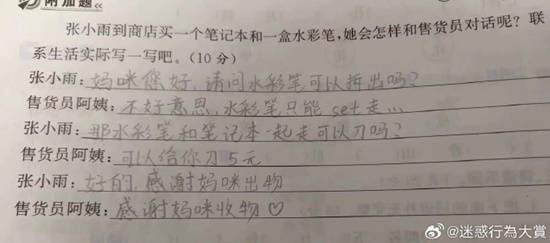 附加题
张小雨到商店买一个笔记本和一盒水彩笔,她会怎样和售货员对话呢?联
系生活实际写一写吧。(10分)
张小雨:妈咪您好,请问水彩笔可以拆出吗?
售货员阿姨:不好意思,水彩笔只能set走…
张小雨:那水彩笔和笔记本一起走可以刀吗?
售货员阿姨:可以给你刀5元
张小雨:好的,感谢妈咪出物
售货员阿姨:感谢妈咪收物♡
@迷惑行為大賞